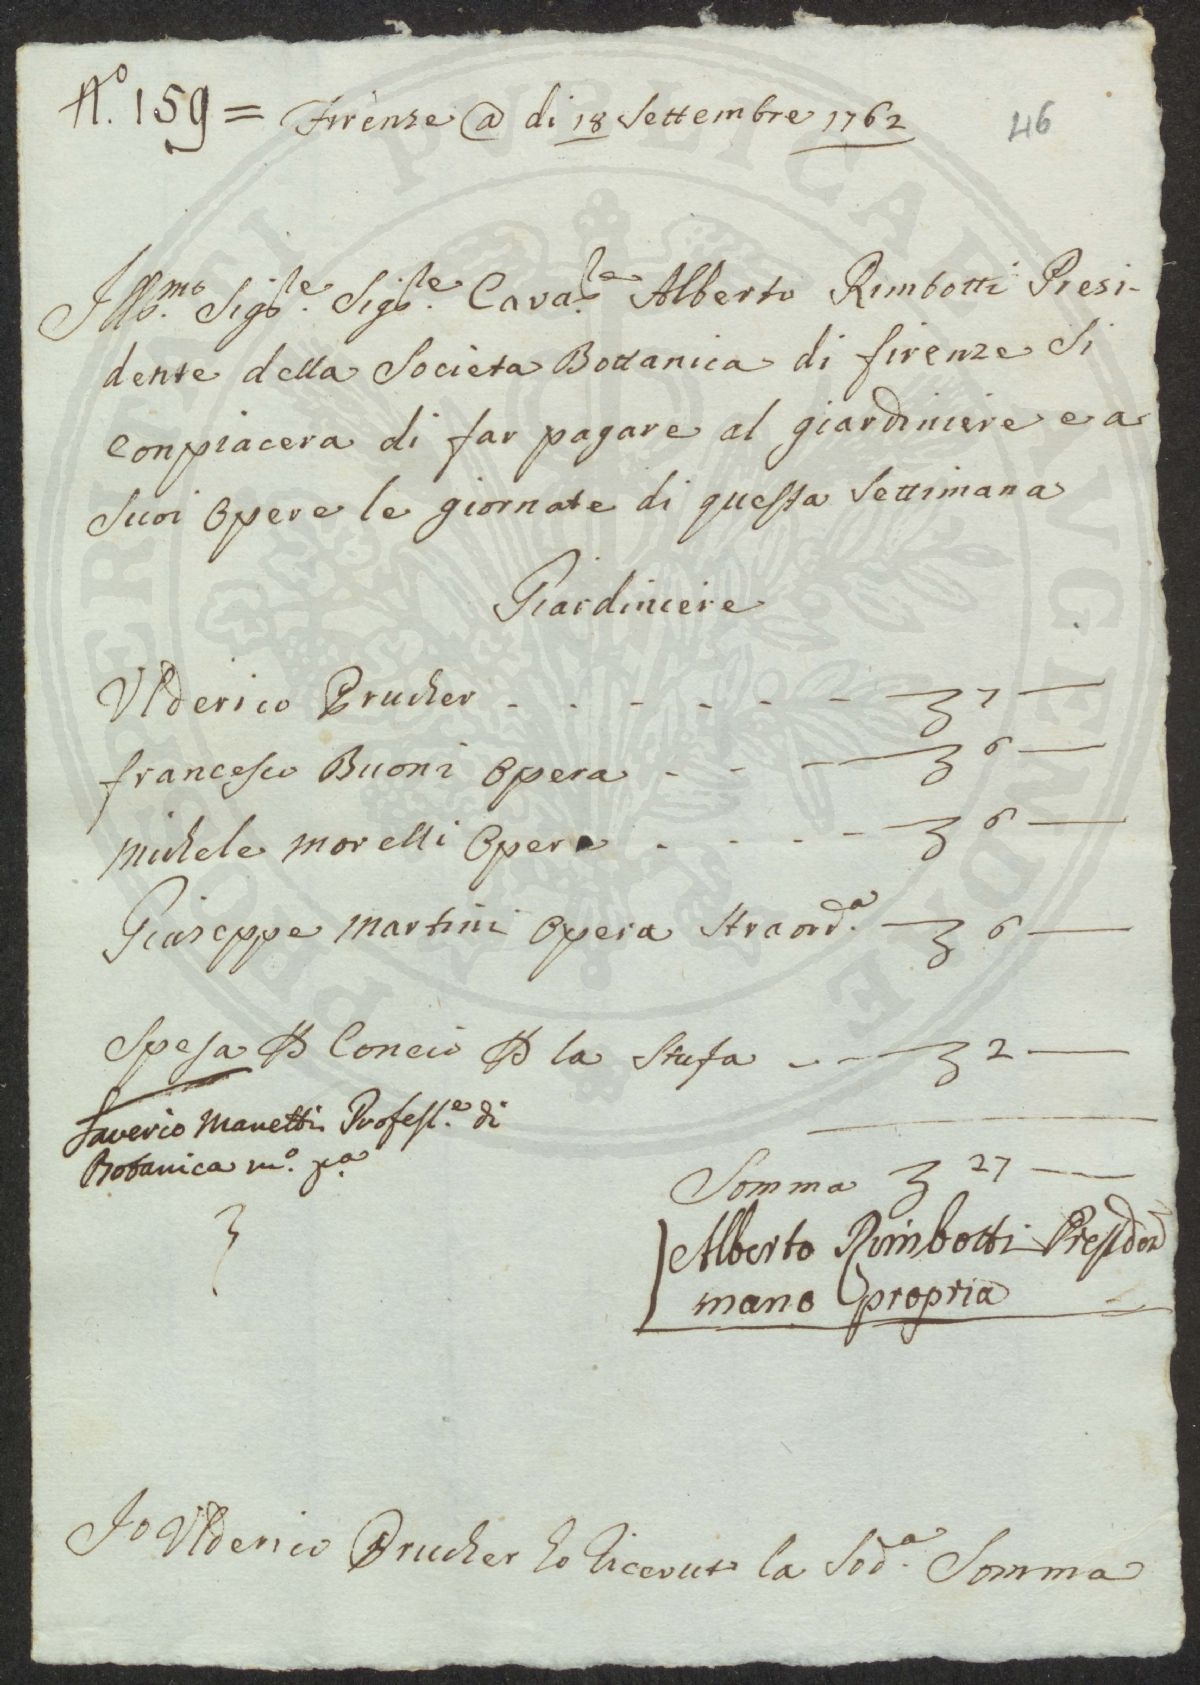 N.º 159 = Firenze @ di 18 Settembre 1762
46
Ill.mo Sig.re Sig.re Cava.re Alberto Rimbotti Presi-
dente della Societa Bottanica di firenze Si
Conpiacera di far pagare al giardiniere e a
Suoi Opere le giornate di questa Settimana
Giardiniere
Ulderico Prucher - - - - - - 7 —
francesco Buoni Opera - - - 6 —
Michele Morelli Opera - - - - 6 —
Giuseppe Martini Opera Straord.a — 6 —
Spesa Concio la Stufa - - 2 —
Saverio Manetti Profess.e di
Botanica m.o p.a
Somma 27 —
Alberto Rimbotti
mano propria
Io Ulderico Prucher ho Riceuto la Sod.a Somma
PUBLICAE